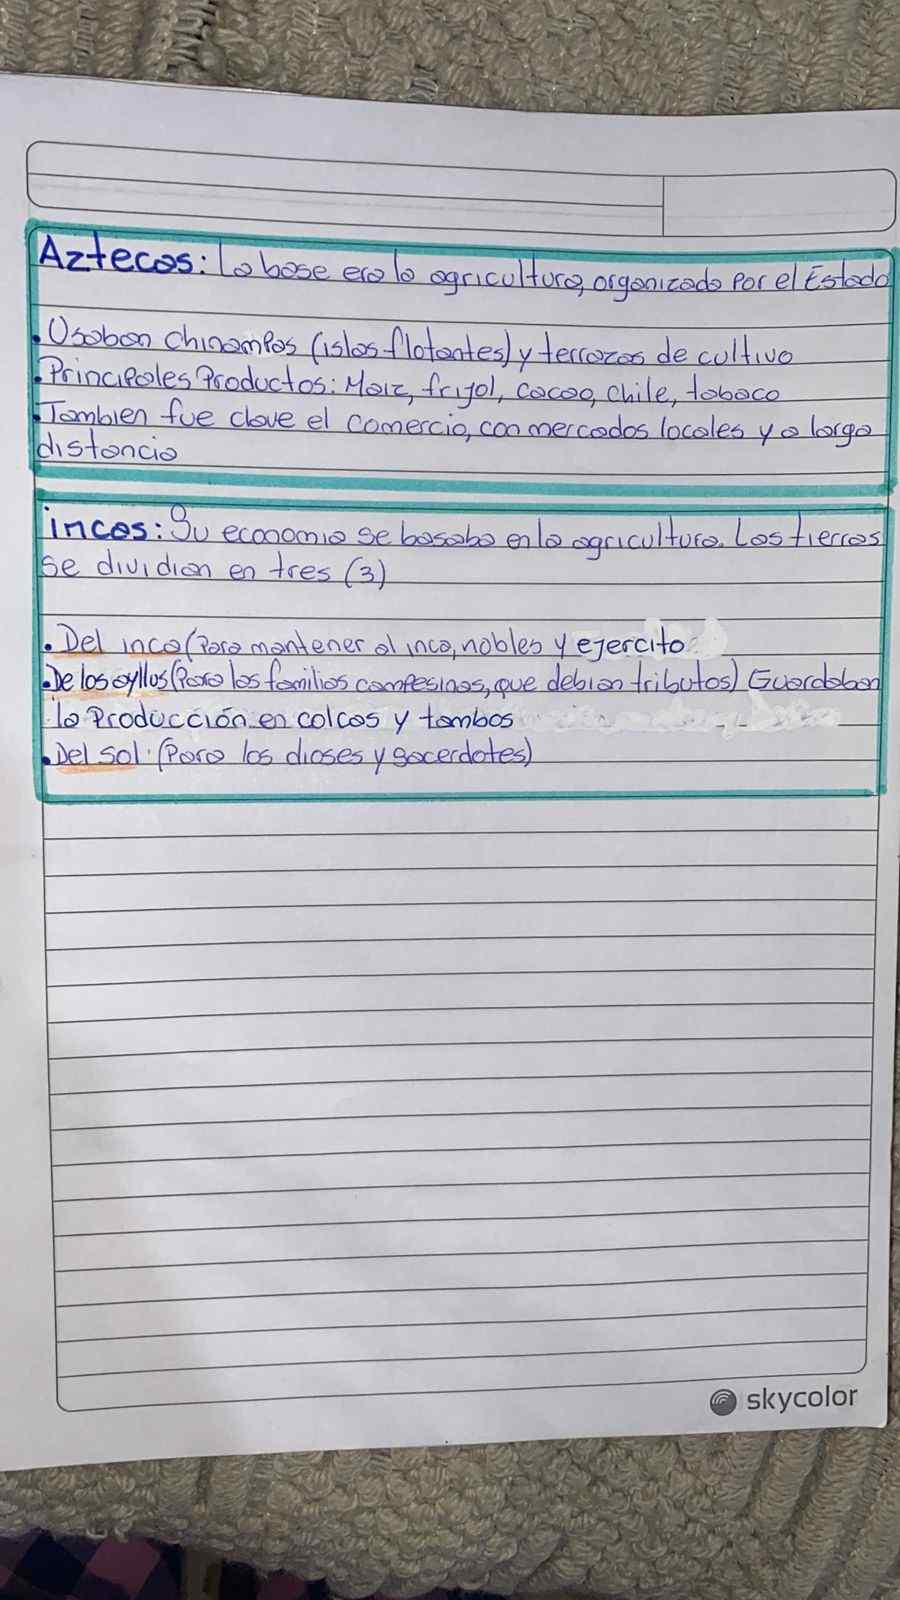 Aztecas: La base era la agricultura, organizada por el Estado
• Usaban chinampas (islas flotantes) y terrazas de cultivo
• Principales Productos: Maiz, frijol, cacao, chile, tabaco
• Tambien fue clave el comercio, con mercados locales y a larga
distancia
incas: Su economia se basaba en la agricultura. Las tierras
se dividian en tres (3)
• Del inca (Para mantener al inca, nobles y ejercito
• De los ayllus (Para las familias campesinas, que debian tributos) Guardaban
la Producción en colcas y tambos
• Del sol: (Para los dioses y sacerdotes)
skycolor